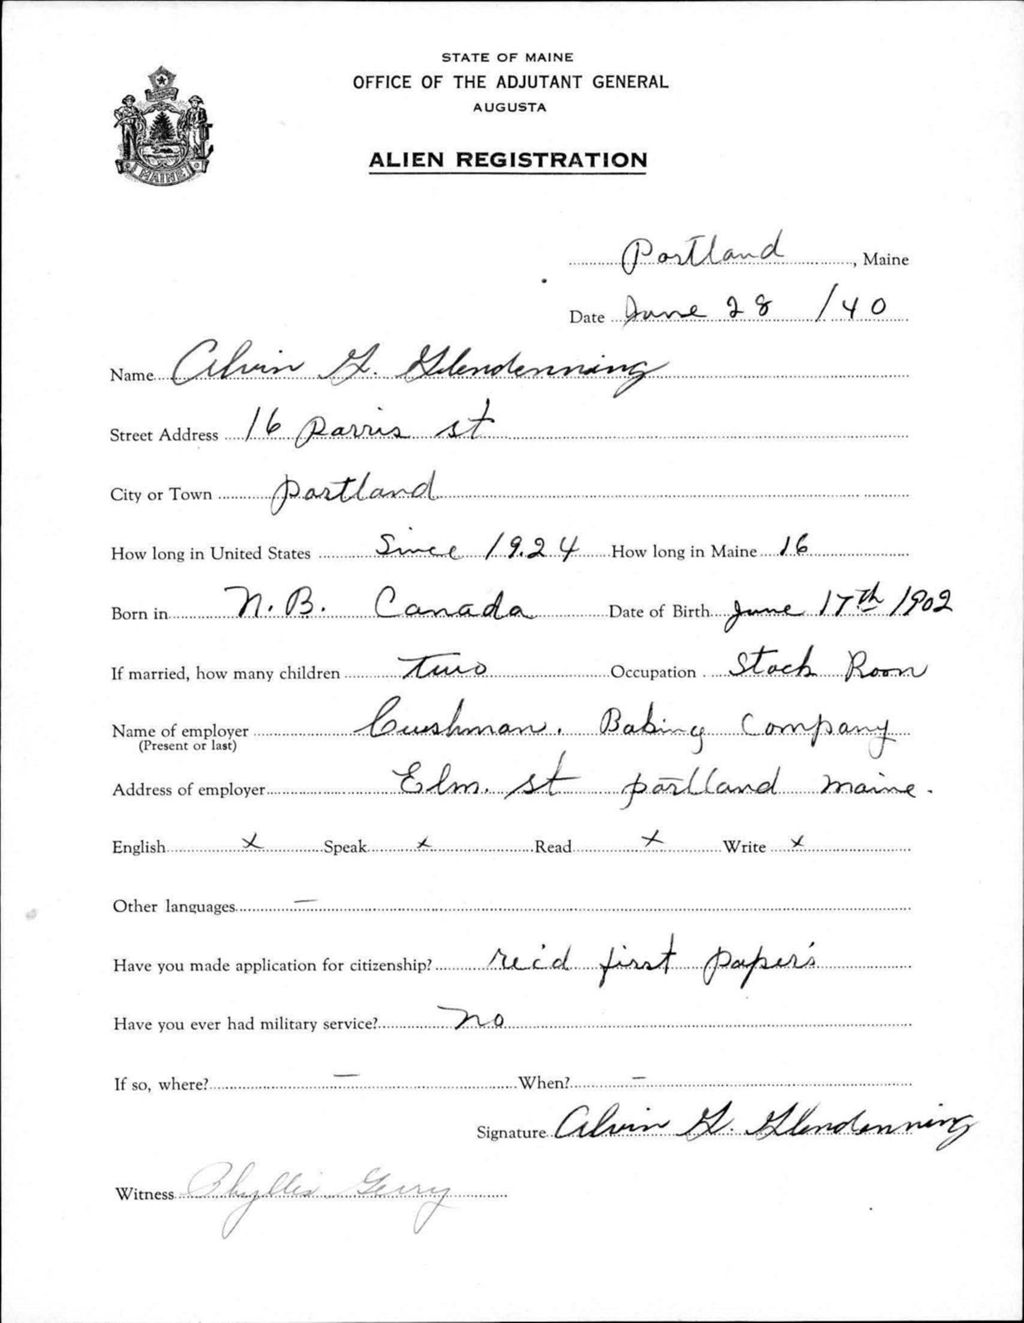 STATE OF MAINE
OFFICE OF THE ADJUTANT GENERAL
AUGUSTA
ALIEN REGISTRATION
MAINE
Portland, Maine
Date June 28 /40
Name Alvin G. Glendenning
Street Address 16 Parris st
City or Town Portland
How long in United States Since 1924 How long in Maine 16
Born in N.B. Canada Date of Birth June 17th 1902
If married, how many children Two Occupation Stock Room
Name of employer Cushman. Baking Company
(Present or last)
Address of employer Elm. st portland maine.
English x Speak x Read x Write x
Other languages —
Have you made application for citizenship? rec'd first paper's
Have you ever had military service? no
If so, where? — When? —
Signature Alvin G. Glendenning
Witness Phyllis Gerry